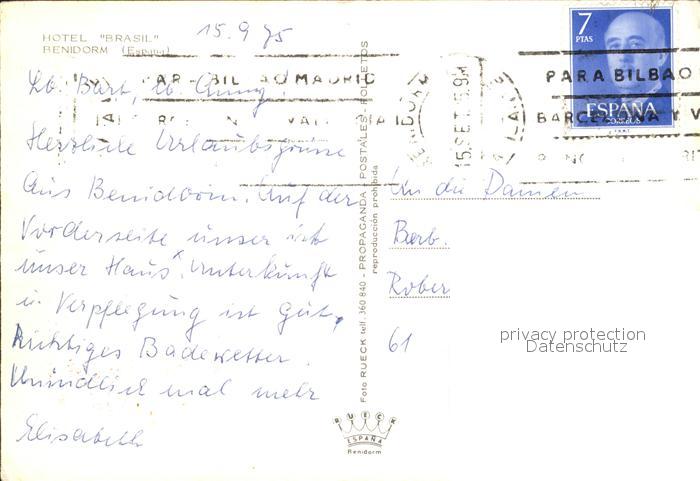 HOTEL "BRASIL"
BENIDORM (España)
15.9.75
Lb. Bärb, lb. Änny!
Herzliche Urlaubsgrüsse
aus Benidorm. Auf der
Vorderseite unser ist
unser Haus x. Unterkunft
u. Verpflegung ist gut,
Richtiges Badewetter.
Mündlich mal mehr
Elisabeth
Foto RUECK telf. 360 840 - PROPAGANDA - POSTALES - FOLLETOS
reproducción prohibida
RUECK
ESPAÑA
Benidorm
7
PTAS
ESPAÑA
CORREOS
PARA BILBAO MADRID
BENIDORM
15 SET.
PARA BILBAO
BARCELONA Y V
An die Damen
Barb.
Rober
61
privacy protection
Datenschutz